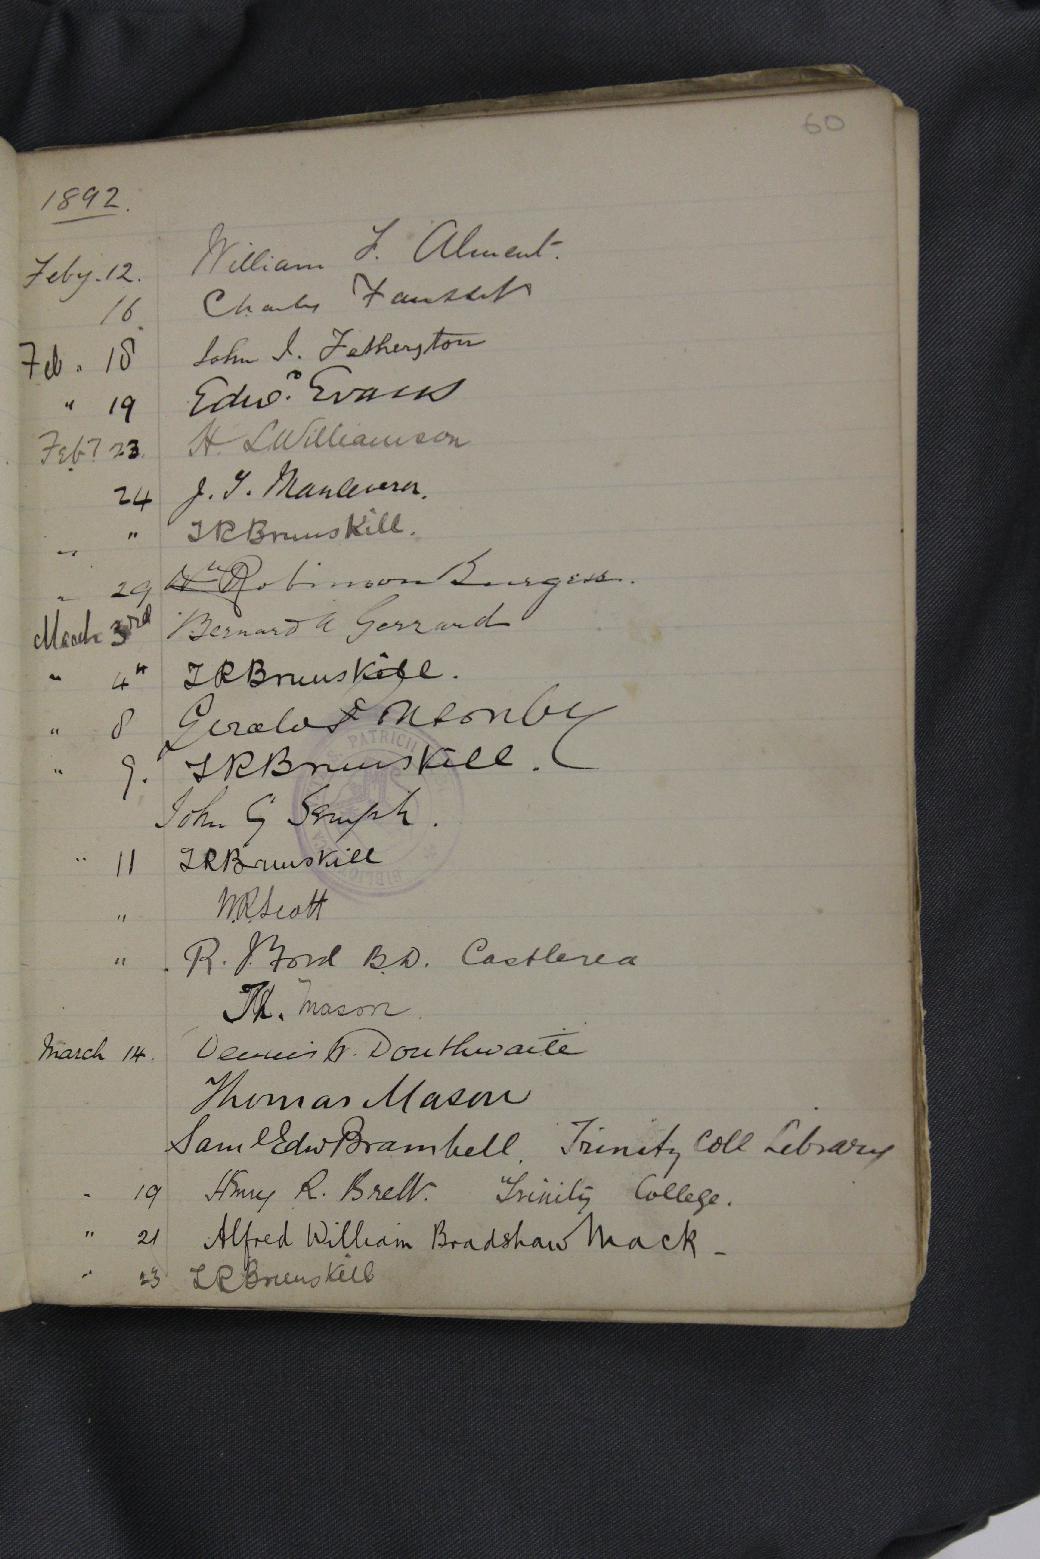 60
1892.
Feby. 12. William F. Alment.
16. Charles Faussett
Feb. 18 John I. Fetherston
" 19 Edwd. Evans
Feby 23. H. L Williamson
24 J. T.
" " T R Brunskill.
" 29 Robinson Burgess.
March 3rd Bernard A Gerrard
" 4th T R Brunskill.
" 8 Gerald Ponsonby
" 9. T R Brunskill.
John G
" 11 T R Brunskill
" W.R. Scott
" R. J. Ford B.D. Castlerea
Th. Mason
March 14. Dennis W. Douthwaite
Thomas Mason
Saml Edw Brambell. Trinity Coll Library
" 19 Henry R. Brett. Trinity College.
" 21 Alfred William Bradshaw Mack -
" 23 T R Brunskill
PATRICII
BIBLIO